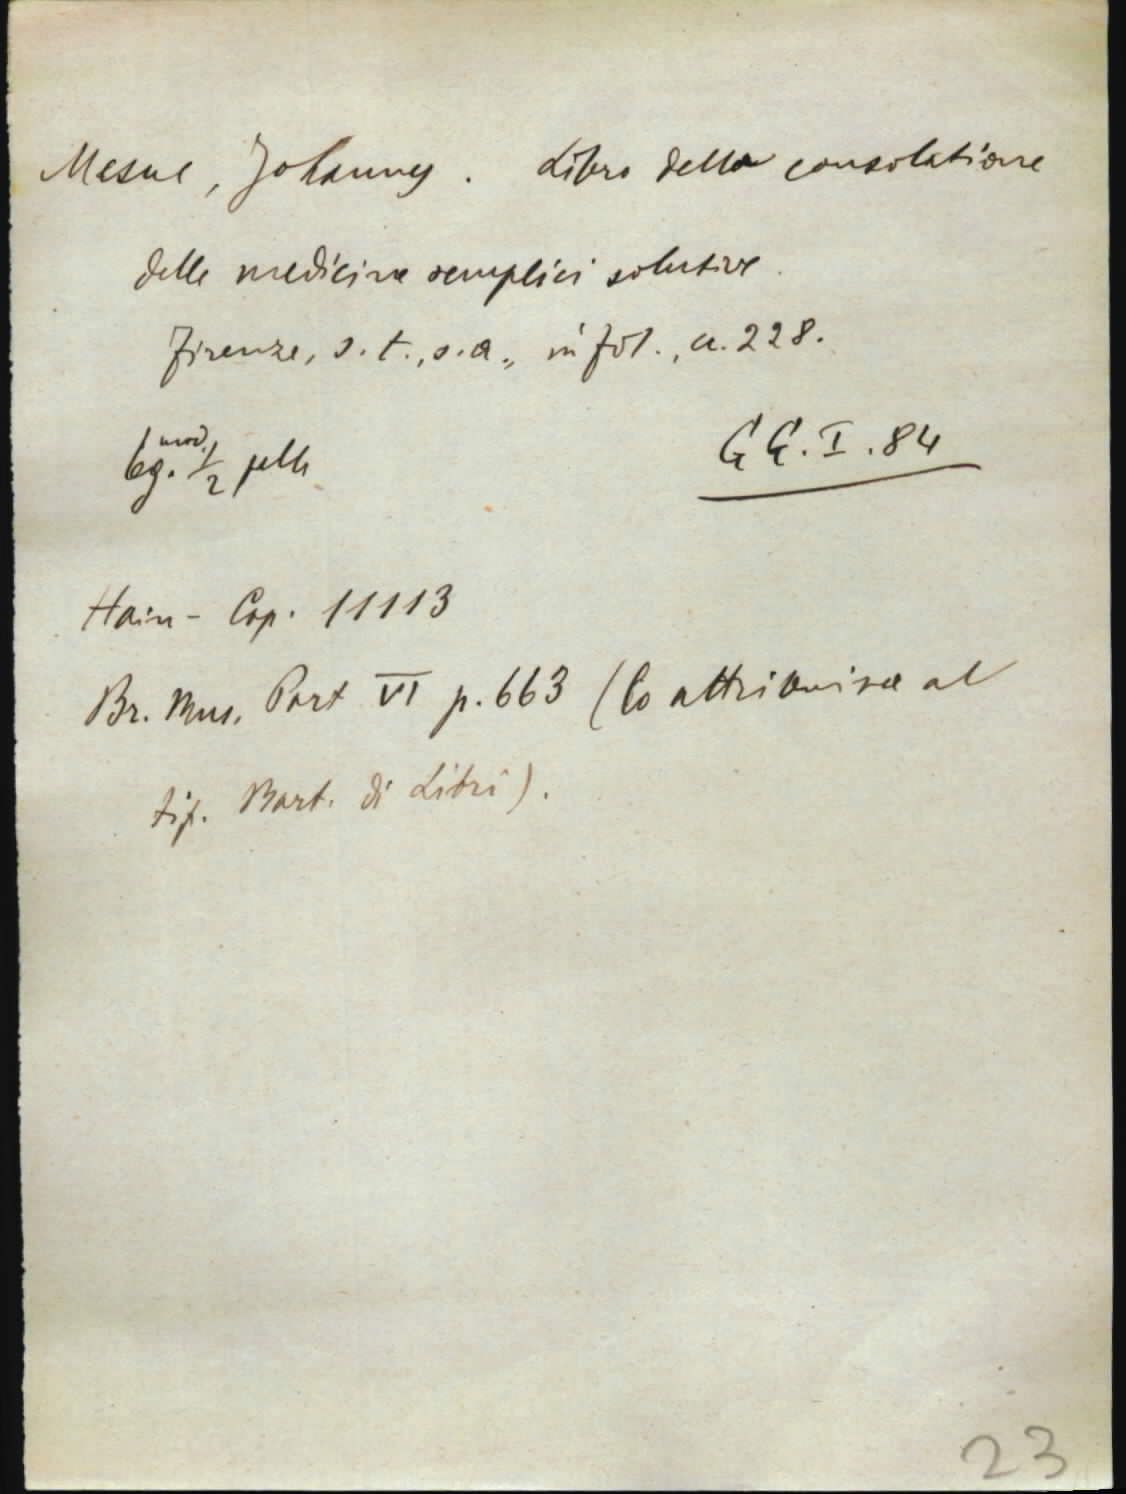 Mesue, Johannes. Libro della consolatione
delle medicine semplici solutive.
Firenze, s.t., s.a., in fol., c. 228.
leg. mod. 1/2 pelle
GG.I.84
Hain-Cop. 11113
Br. Mus. Part VI p. 663 (lo attribuisce al
tip. Bart. di Libri).
23